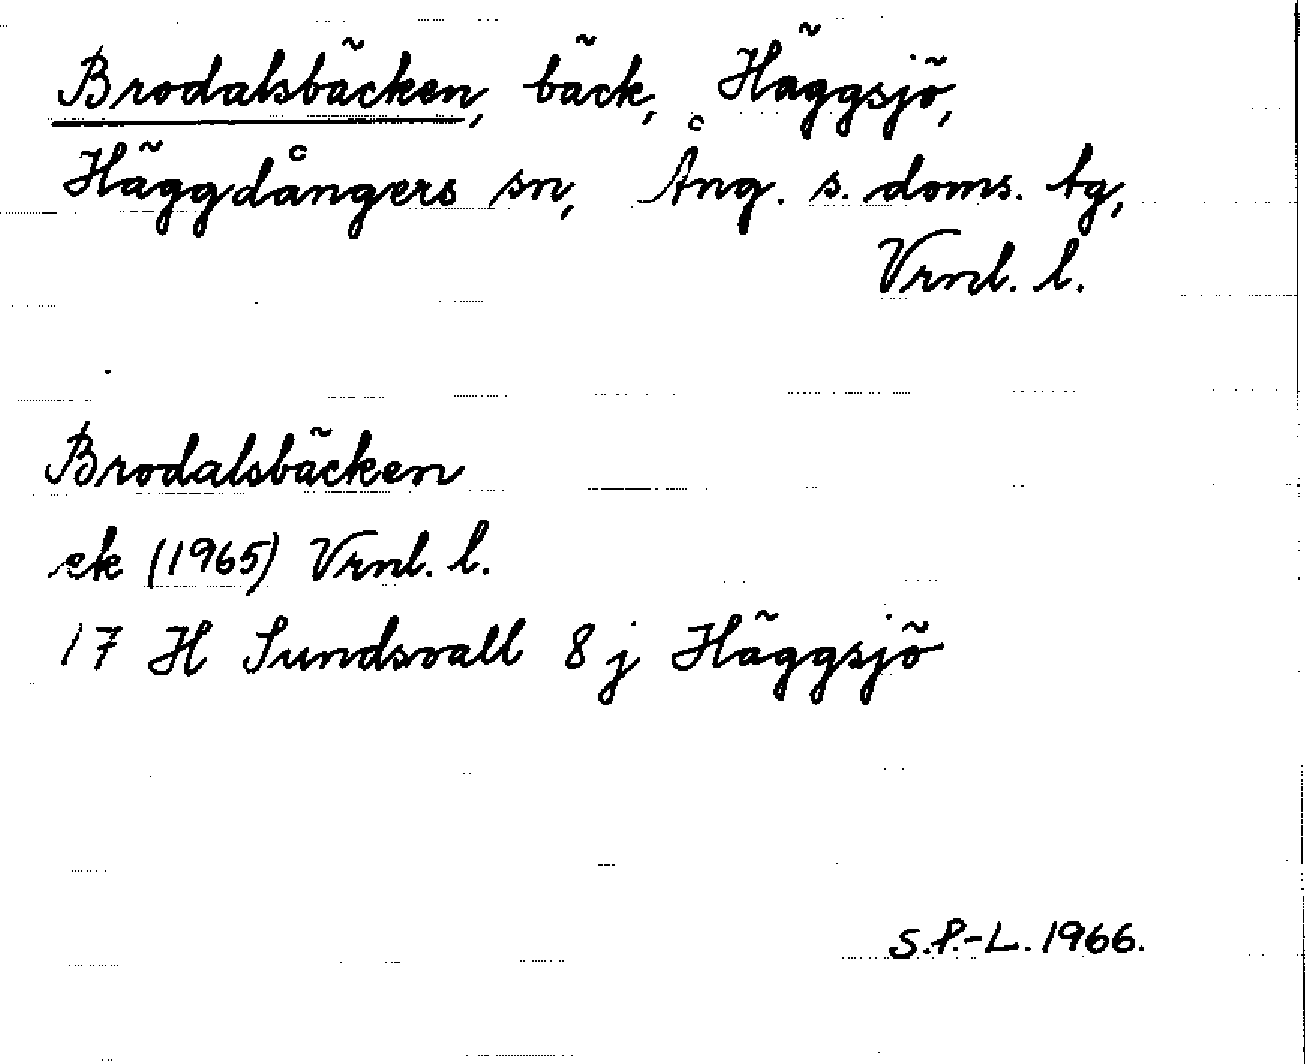 Brodalsbäcken, bäck, Häggsjö,
Häggdångers sn, Ång. s. doms. tg,
Vrnl. l.
Brodalsbäcken
ek (1965) Vrnl. l.
17 H Sundsvall 8 j Häggsjö
S.P.-L. 1966.